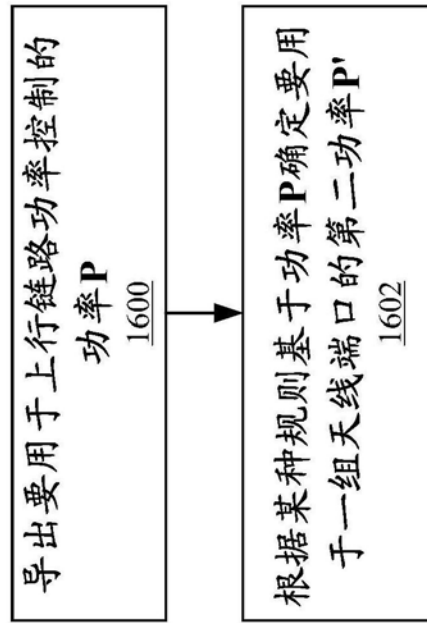 导出要用于上行链路功率控制的
功率P
1600
根据某种规则基于功率P确定要用
于一组天线端口的第二功率P'
1602